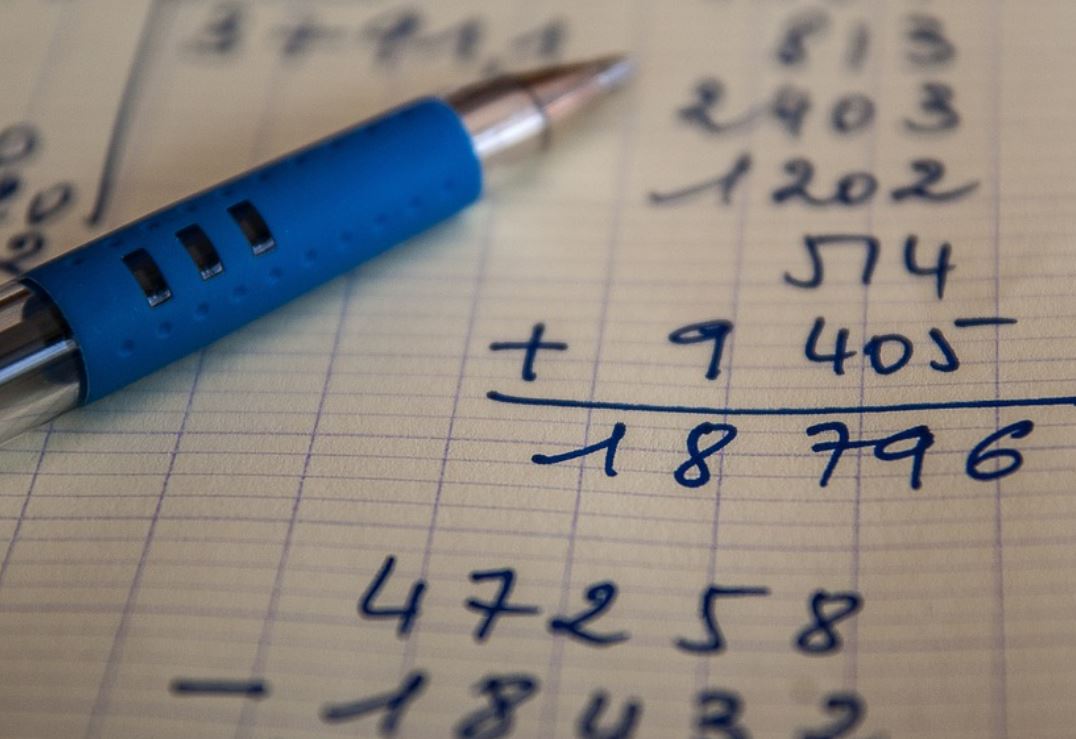 813
2403
1202
514
+ 9 405
18 796
47258
- 18432